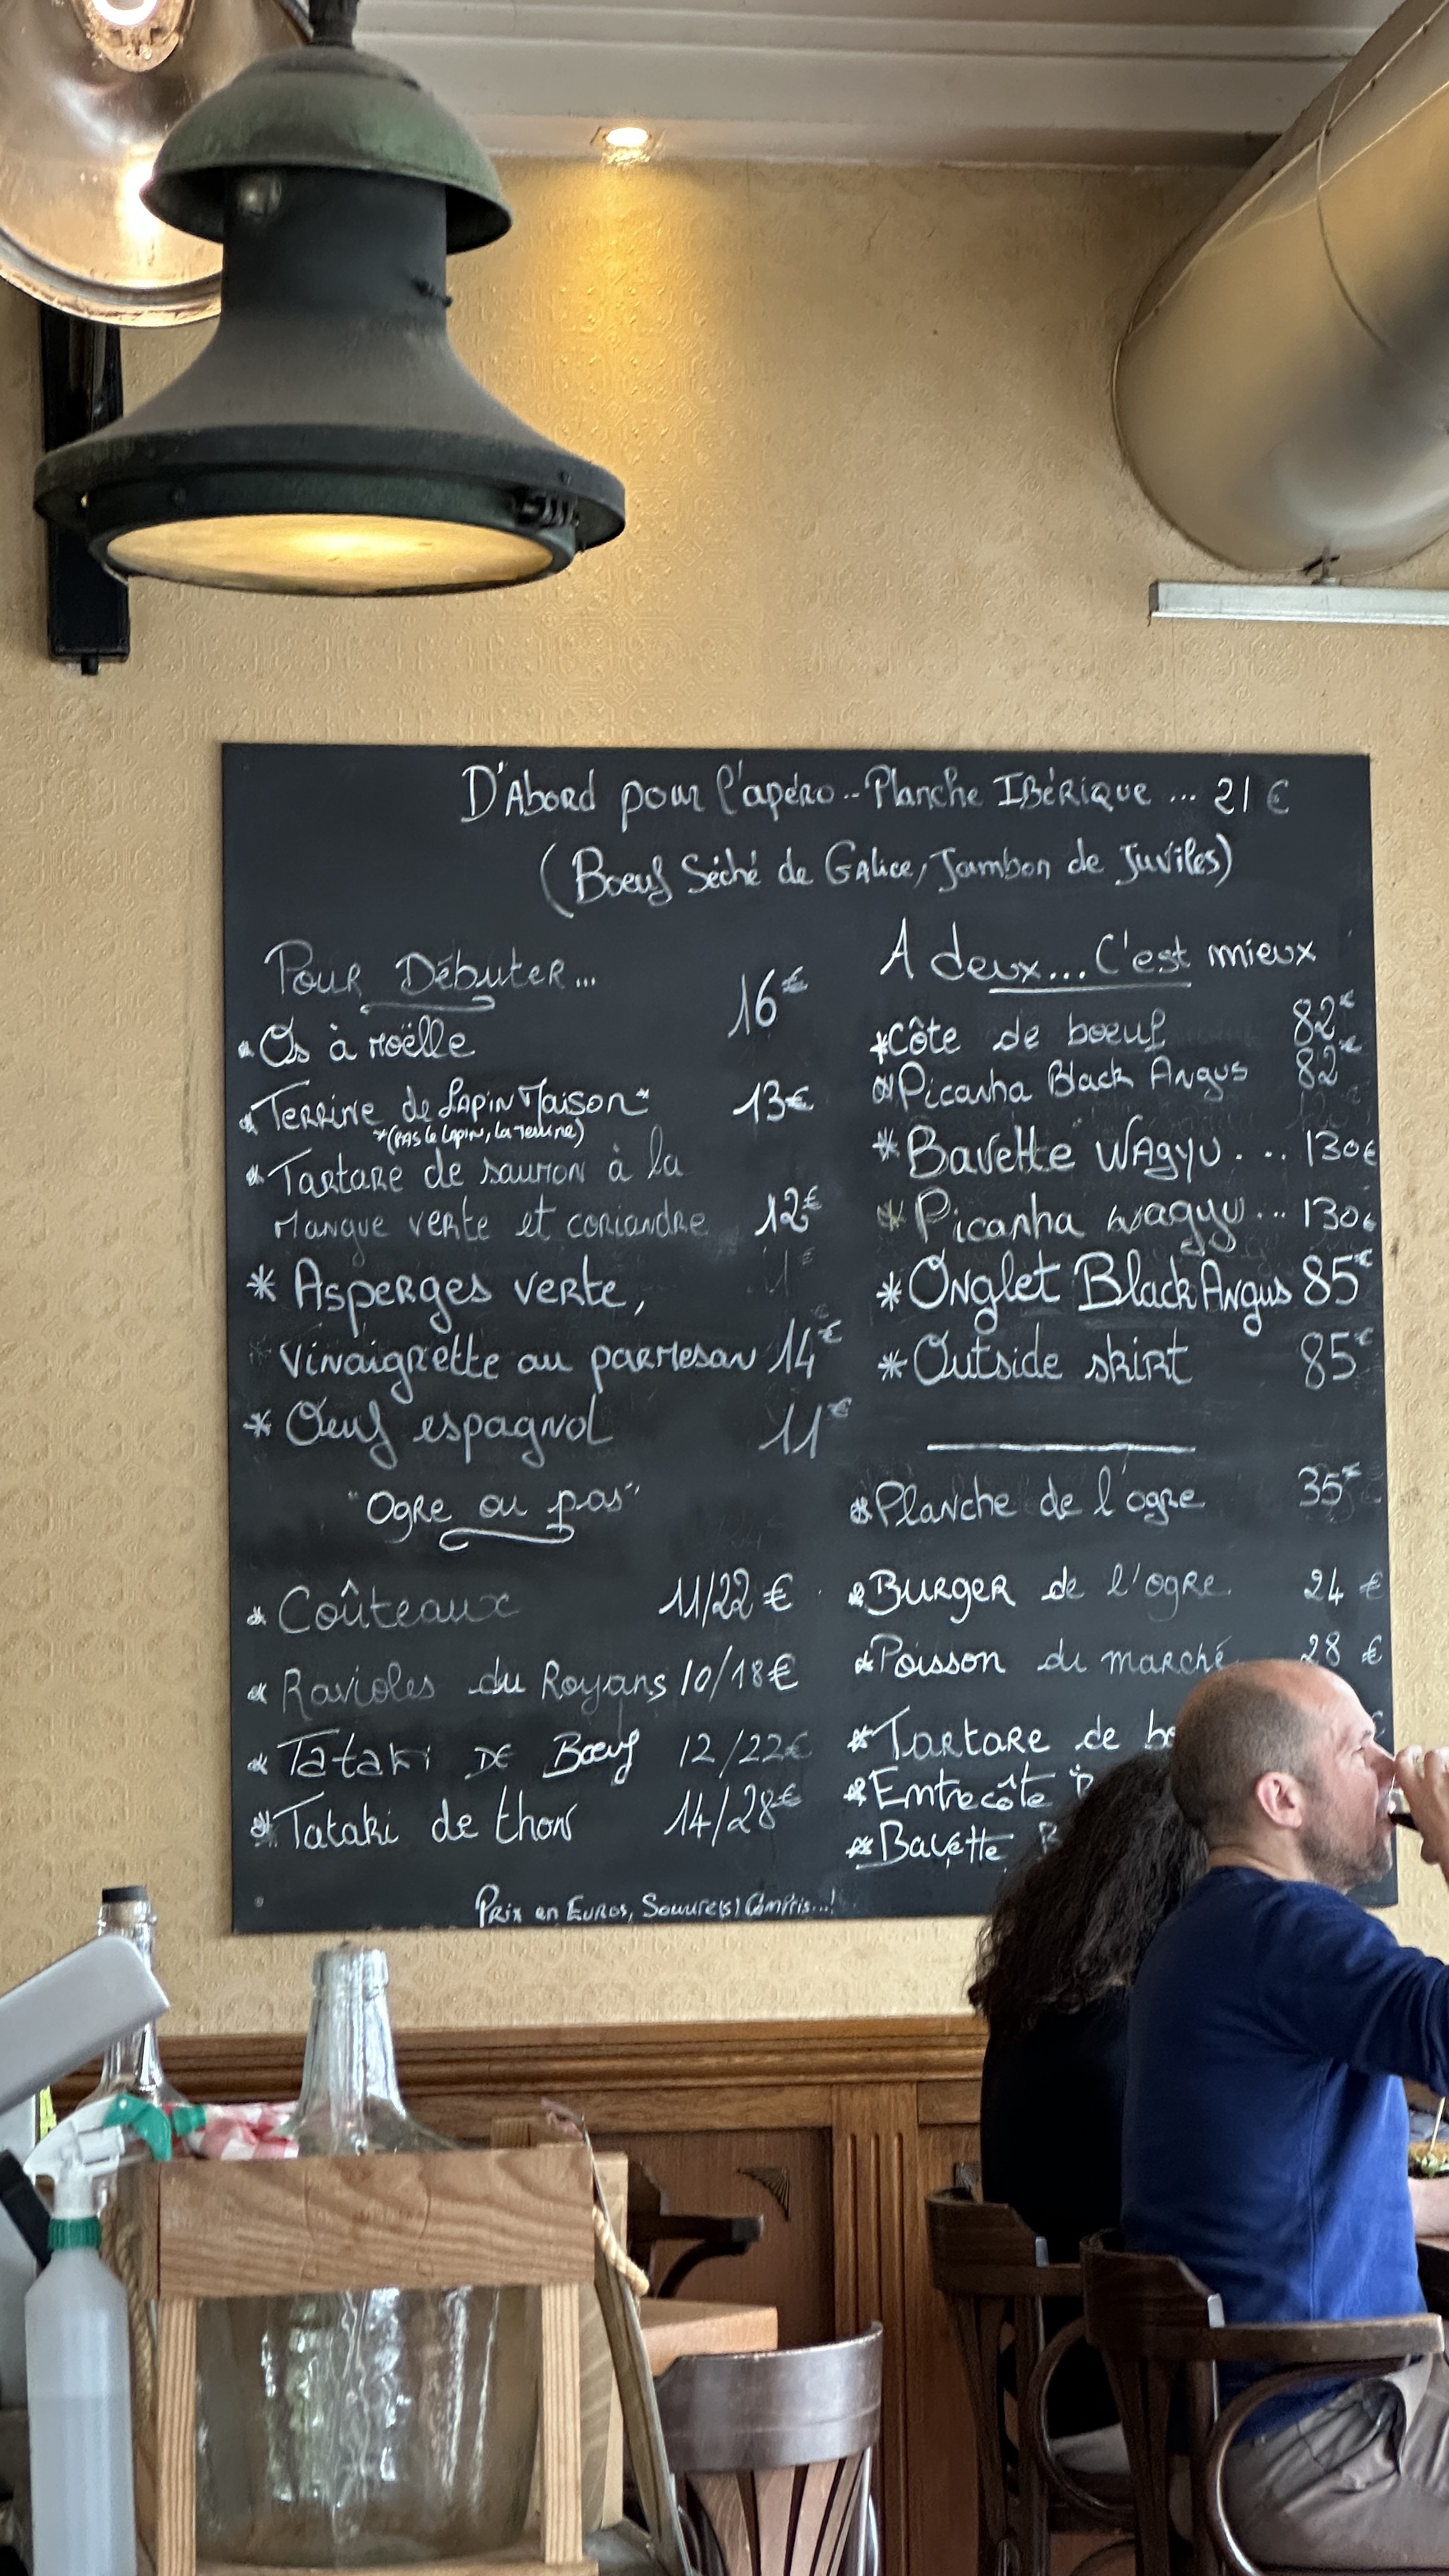 D'Abord pour l'apéro.. Planche Ibérique ... 21 €
(Boeuf Séché de Galice, Jambon de Juviles)
Pour Débuter...
* Os à Moëlle 16€
* Terrine de Lapin Maison* 13€
*(PAS le lapin, la Terrine)
* Tartare de saumon à la
Mangue verte et coriandre 12€
* Asperges verte,
vinaigrette au parmesan 14€
* Oeuf espagnol 11€
"Ogre ou pas"
* Coûteaux 11/22 €
* Ravioles du Royans 10/18€
* Tataki de Boeuf 12/22€
* Tataki de thon 14/28€
A deux... C'est mieux
* Côte de boeuf 82€
* Picanha Black Angus 82€
* Bavette Wagyu . . . 130€
* Picanha wagyu ... 130€
* Onglet Black Angus 85€
* Outside skirt 85€
* Planche de l'ogre 35€
* Burger de l'ogre 24 €
* Poisson du marché 28 €
* Tartare de €
* Entrecôte
* Bavette
Prix en Euros, Sourire(s) Compris...!